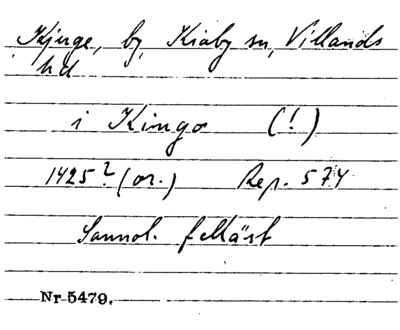 Kjuge, by, Kiaby sn, Villands
hd
i Kingo (!)
1425? (or.) Rep. 574
Sannol. felläst
Nr 5479.